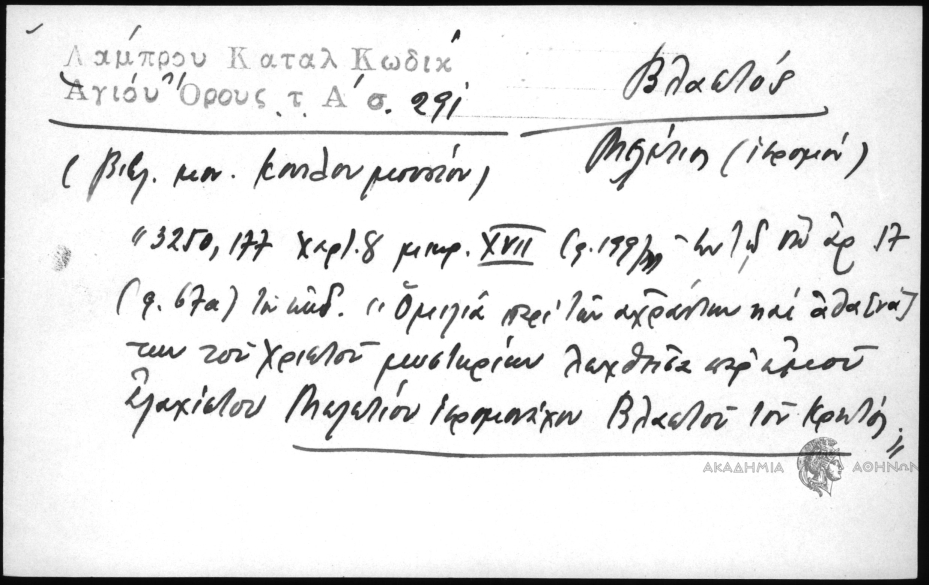 Λάμπρου Καταλ Κωδικ
Ἁγίου Ὄρους τ. Α΄ σ. 291
Βλαστός
Μελέτιος (ἱερομον)
(Βιβλ. μον. Κουτλουμουσίου)
"3250, 177 χαρτ. 8 μικρ. XVII (φ. 199) ἐν τῷ ὑπ ἀρ 17
(φ. 67α) τοῦ κώδ. "Ὁμιλία περὶ τῶν ἀχράντων καὶ ἀθα[νά]
των τοῦ Χριστοῦ μυστηρίων λεχθεῖσα παρ' ἐμοῦ
ἐλαχίστου Μελετίου ἱερομονάχου Βλαστοῦ τοῦ Κρητός."
ΑΚΑΔΗΜΙΑ ΑΘΗΝΩΝ